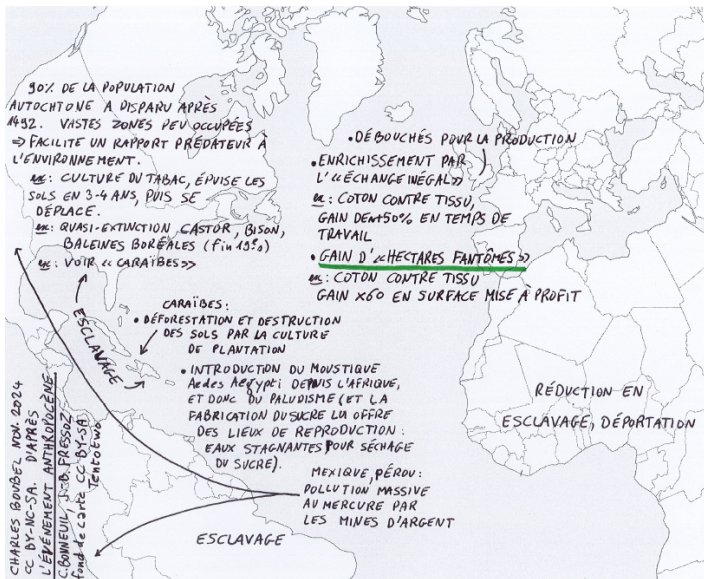 90% DE LA POPULATION
AUTOCHTONE A DISPARU APRÈS
1492. VASTES ZONES PEU OCCUPÉES
⇒ FACILITE UN RAPPORT PRÉDATEUR À
L'ENVIRONNEMENT.
ex: CULTURE DU TABAC, ÉPUISE LES
SOLS EN 3-4 ANS, PUIS SE
DÉPLACE.
ex: QUASI-EXTINCTION CASTOR, BISON,
BALEINES BORÉALES (fin 19è)
ex: VOIR «CARAÏBES»
• DÉBOUCHÉS POUR LA PRODUCTION
• ENRICHISSEMENT PAR
L'«ÉCHANGE INÉGAL»
ex: COTON CONTRE TISSU,
GAIN DE +50% EN TEMPS DE
TRAVAIL
• GAIN D'«HECTARES FANTÔMES»
ex: COTON CONTRE TISSU
GAIN x60 EN SURFACE MISE À PROFIT
ESCLAVAGE
CARAÏBES:
• DÉFORESTATION ET DESTRUCTION
DES SOLS PAR LA CULTURE
DE PLANTATION
• INTRODUCTION DU MOUSTIQUE
Aedes Aegypti DEPUIS L'AFRIQUE,
ET DONC DU PALUDISME (ET LA
FABRICATION DU SUCRE LUI OFFRE
DES LIEUX DE REPRODUCTION:
EAUX STAGNANTES POUR SÉCHAGE
DU SUCRE).
RÉDUCTION EN
ESCLAVAGE, DÉPORTATION
MEXIQUE, PÉROU:
POLLUTION MASSIVE
AU MERCURE PAR
LES MINES D'ARGENT
ESCLAVAGE
CHARLES BOUBEL NOV. 2024
CC BY-NC-SA. D'APRÈS
L'ÉVÉNEMENT ANTHROPOCÈNE
C. BONNEUIL, J-B. FRESSOZ
fond de carte CC-BY-SA
Tentotwo